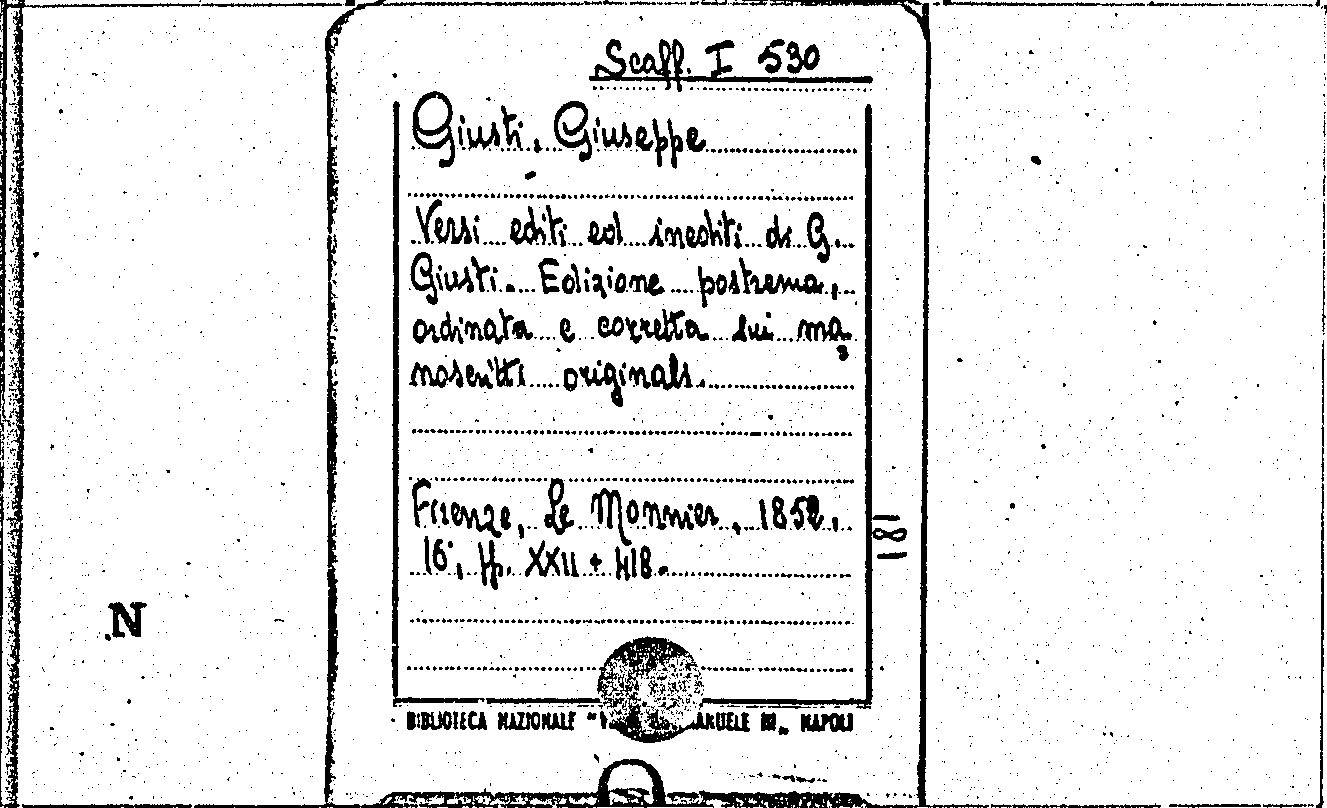 Scaff. I 530
Giusti, Giuseppe
Versi editi ed inediti di G.
Giusti. Edizione postrema,
ordinata e corretta sui ma=
noscritti originali.
Firenze, Le Monnier, 1852,
16°, pp. XXII + 418.
181
N
BIBLIOTECA NAZIONALE " NAPOLI